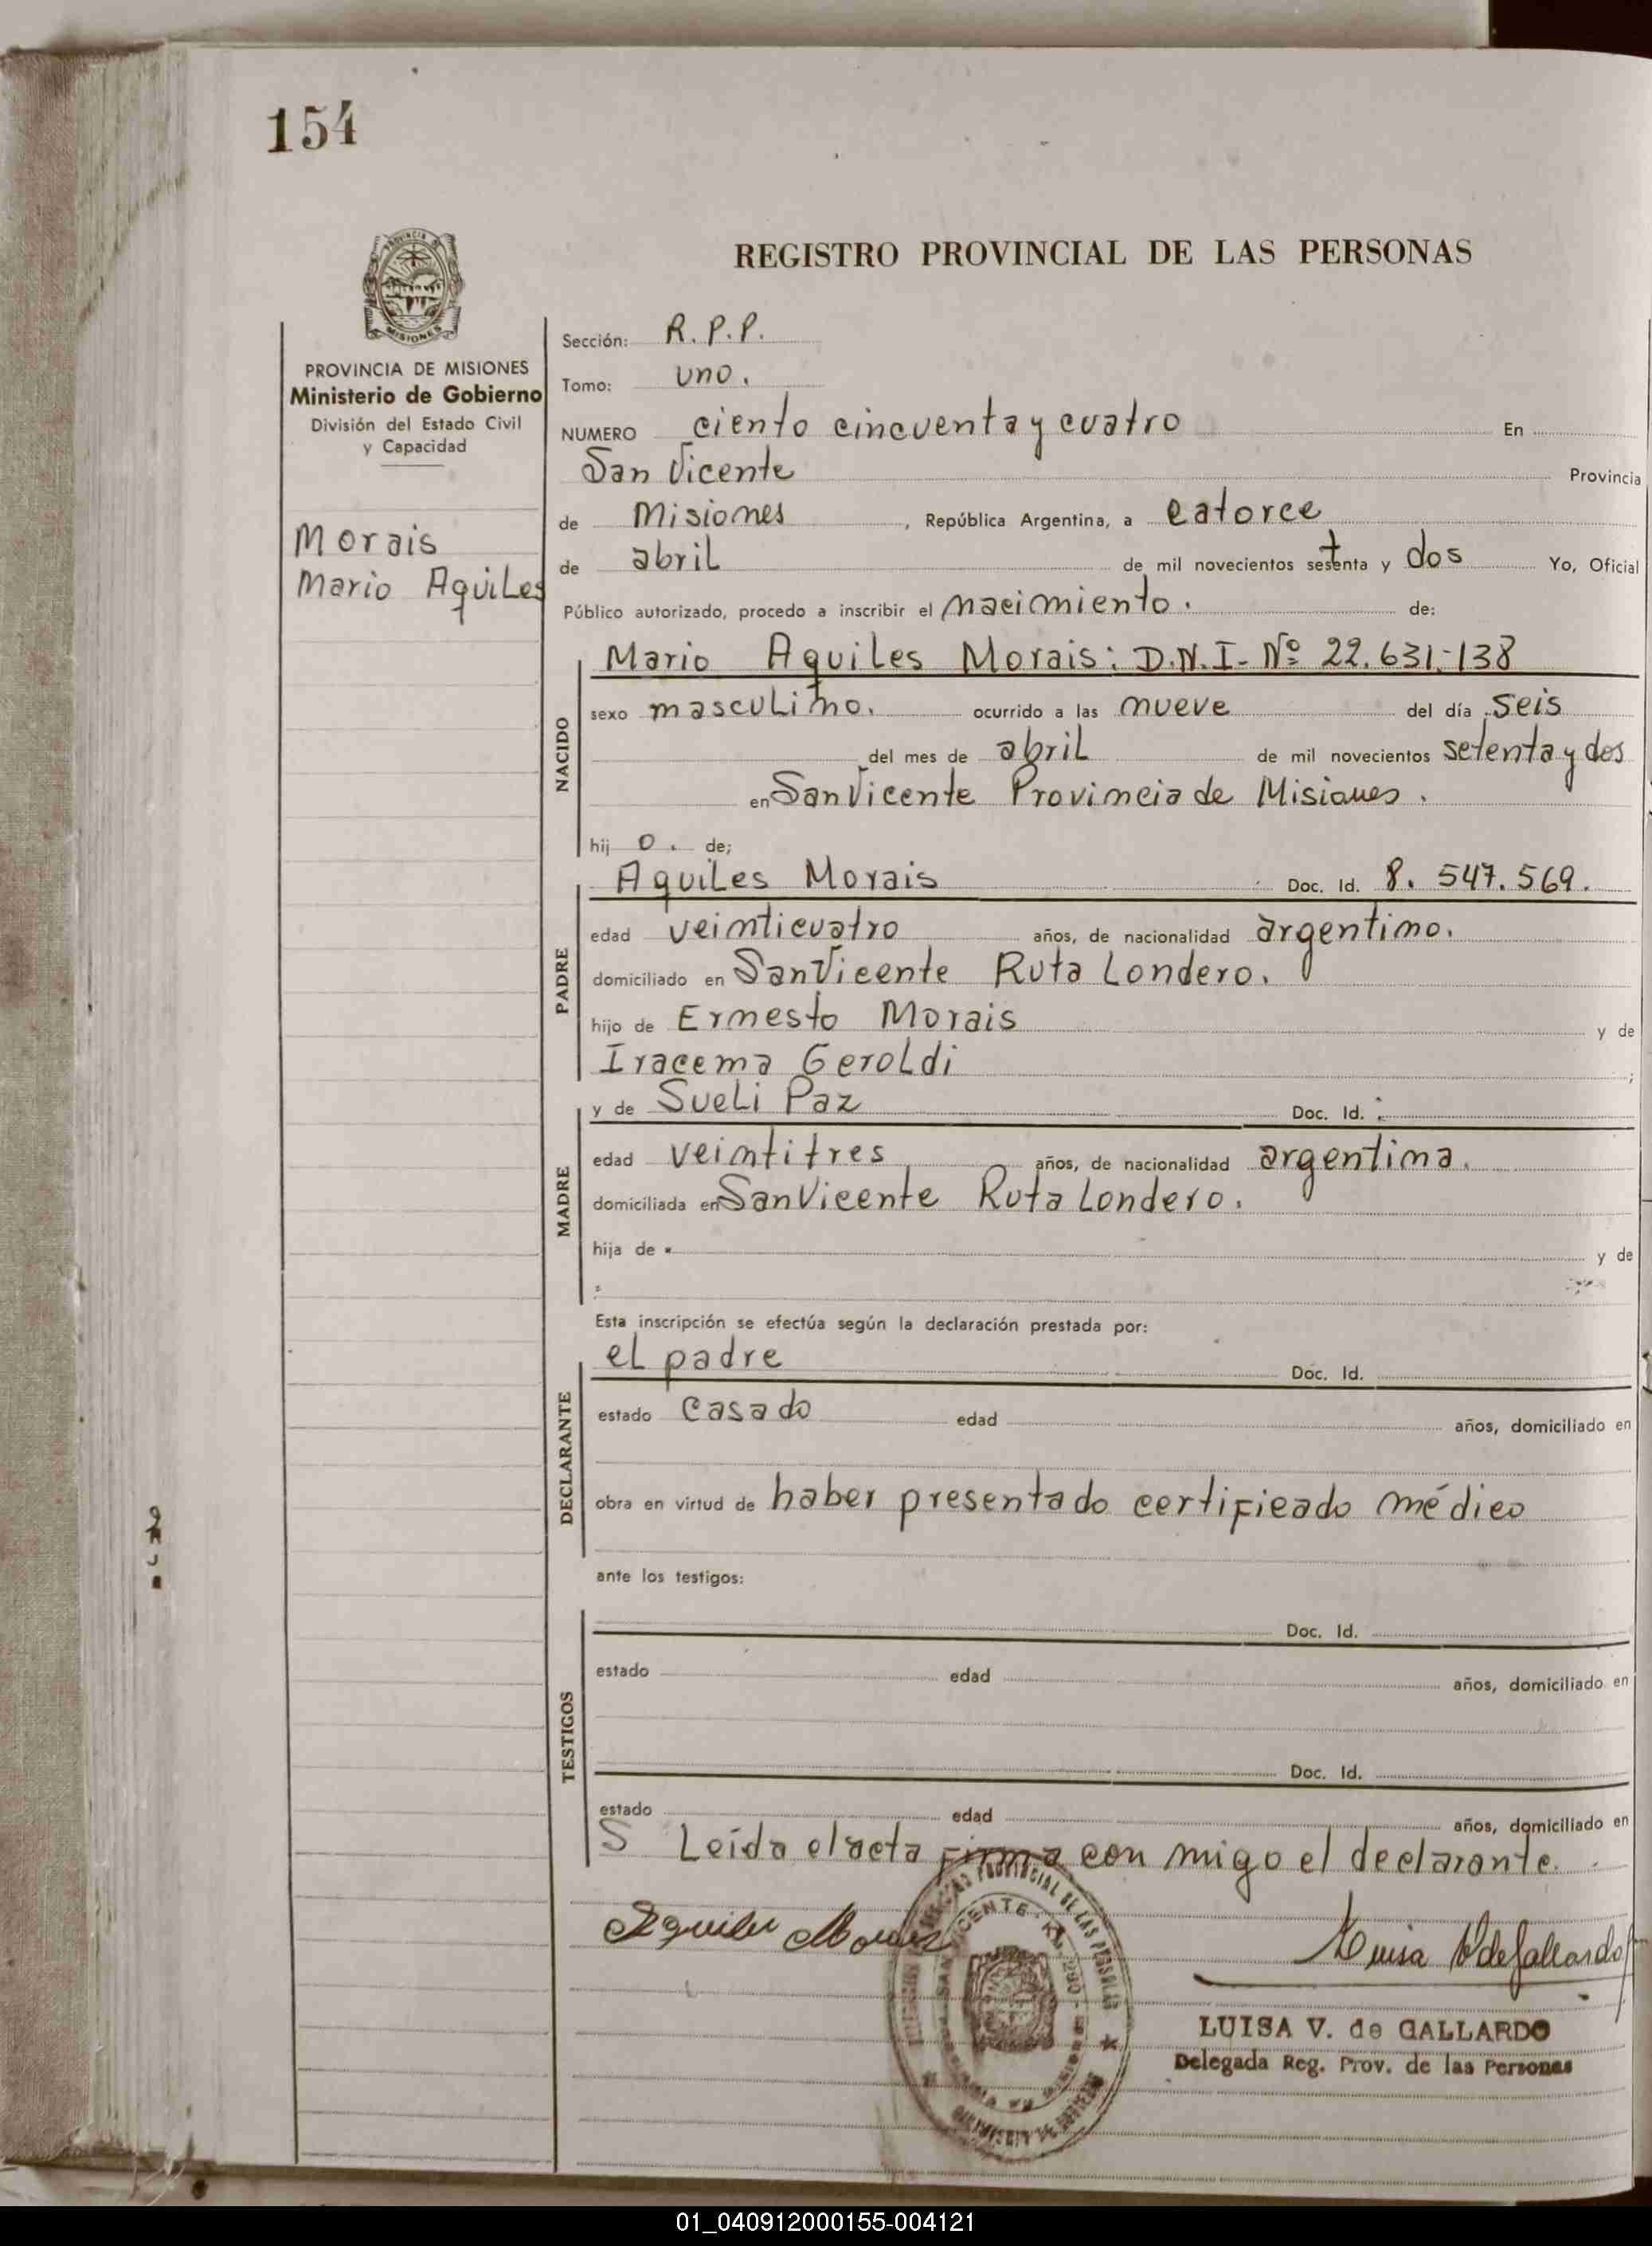 154
PROVINCIA DE
MISIONES
REGISTRO PROVINCIAL DE LAS PERSONAS
PROVINCIA DE MISIONES
Ministerio de Gobierno
División del Estado Civil
y Capacidad
Morais
Mario Aquiles
Sección: R.P.P.
Tomo: uno.
NUMERO ciento cincuenta y cuatro En
San Vicente Provincia
de Misiones, República Argentina, a catorce
de abril de mil novecientos setenta y dos Yo, Oficial
Público autorizado, procedo a inscribir el nacimiento. de:
NACIDO
Mario Aquiles Morais: D.N.I- Nº 22.631.-138
sexo masculino. ocurrido a las nueve del día seis
del mes de abril de mil novecientos setenta y dos
en San Vicente Provincia de Misiones.
hij o. de;
PADRE
Aquiles Morais Doc. Id. 8. 547.569.
edad veinticuatro años, de nacionalidad argentino.
domiciliado en San Vicente Ruta Londero.
hijo de Ernesto Morais y de
Iracema Geroldi ;
MADRE
y de Sueli Paz Doc. Id. :
edad veintitres años, de nacionalidad argentina.
domiciliada en San Vicente Ruta Londero.
hija de y de
Esta inscripción se efectúa según la declaración prestada por:
DECLARANTE
el padre Doc. Id.
estado casado edad años, domiciliado en
obra en virtud de haber presentado certificado médico
ante los testigos:
TESTIGOS
Doc. Id.
estado edad años, domiciliado en
Doc. Id.
estado edad años, domiciliado en
S Leída el acta firma con migo el declarante.
Aquiles Morais
Luisa V de Gallardo
PROVINCIAL DE LAS PERSONAS
SAN VICENTE - KM. 290 -
MINISTERIO DE GOBIERNO
LUISA V. de GALLARDO
Delegada Reg. Prov. de las Personas
01_040912000155-004121